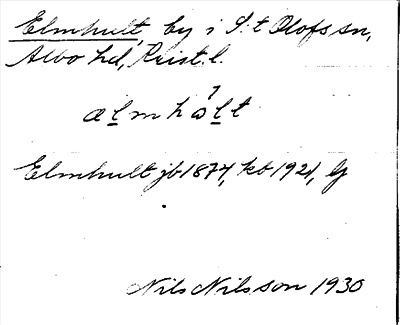 Elmhult, by i S:t Olofs sn,
Albo hd, Krist. l.
ælmhålt
Elmhult jb 1874, kb 1921, G
Nils Nilsson 1930